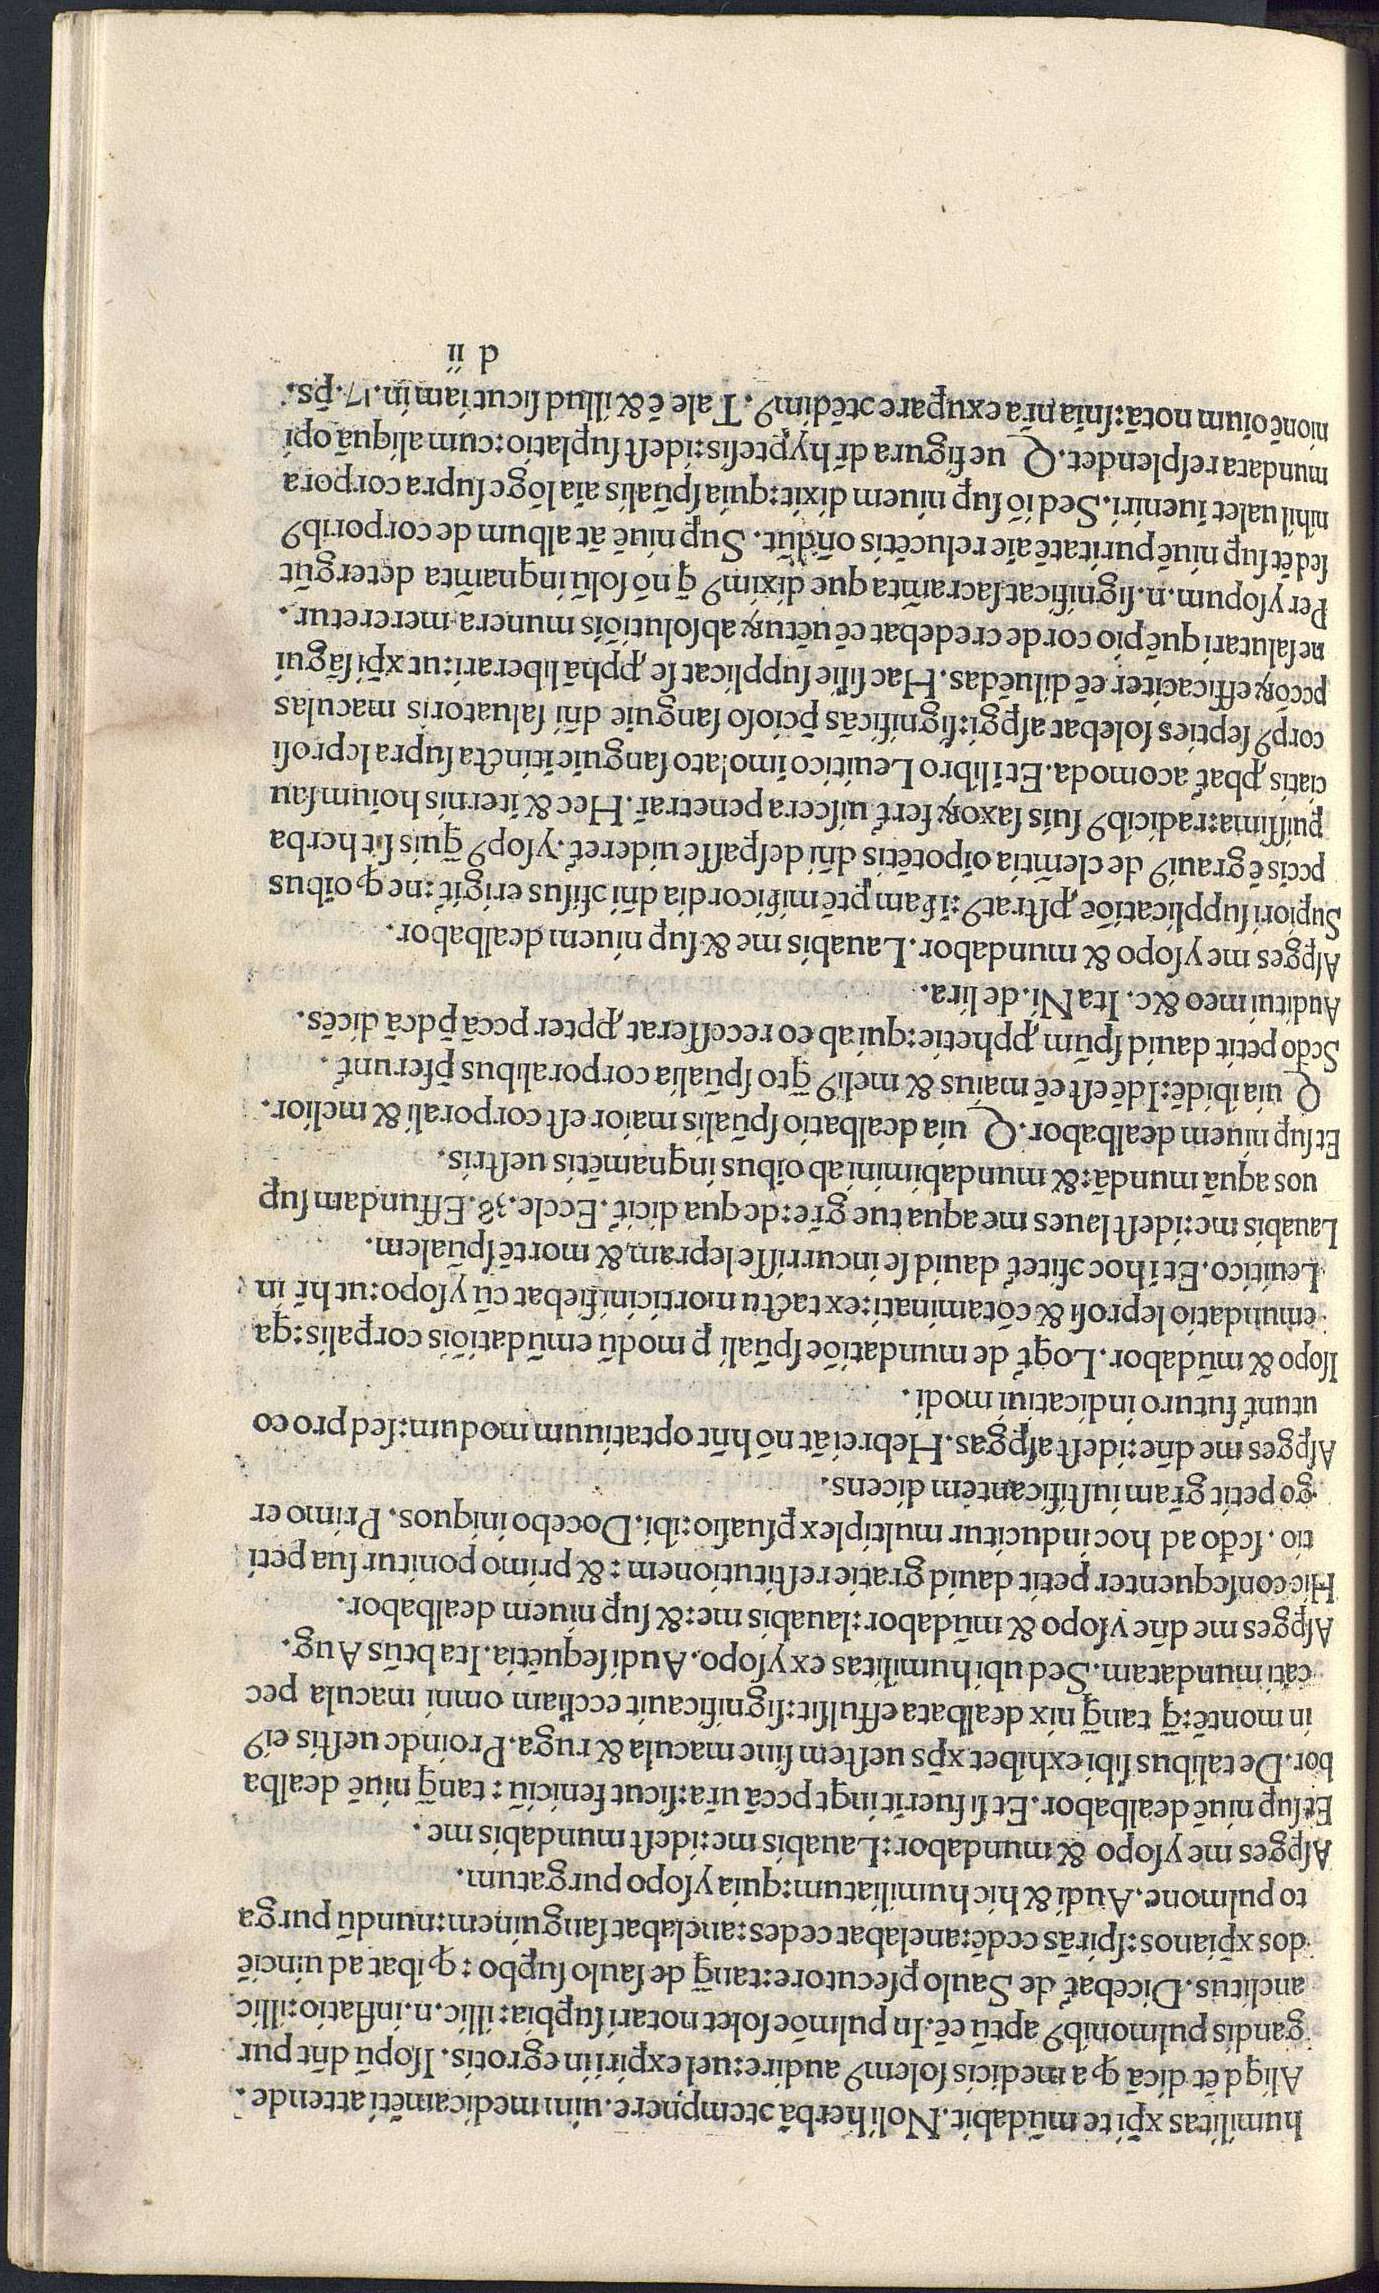 humilitas xp̄i te mūdabit. Noli herbā ↄtemp̱nere. uim medicamēti attende.
Aliqd ēt dicā qꝫ a medicis solemꝰ audire: uel expiri in egrotis. Isopū dn̄t pur
gandis pulmonibꝰ aptū eē. In pulmōe solet notari supbia: illic.n.inflatio: illic
anelitus. Dicebať de Saulo psecutore: tanꝗ̄ de saulo supbo: qꝫ ibat ad uinciē
dos xp̄ianos: spirās cedē: anelabat cedes: anelabat sanguinem: nundū purga
to pulmone. Audi & hic humiliatum: quia ysopo purgatum.
Asꝑges me ysopo & mundabor: Lauabis me: idest mundabis me.
Et suꝑ niuē dealbabor. Et si fuerīt inqt pccā ur̄a: sicut feniciū: tanꝗ̄ niuē dealba
bor. De talibus sibi exhibet xp̄s uestem sine macula & ruga. Proinde uestis eiꝰ
in montē: ꝗ̄ tanꝗ̄ nix dealbata effulsit: significauit eccłiam omni macula pec
cati mundatam. Sed ubi humilitas ex ysopo. Audi sequētia. Ita btūs Aug.
Asꝑges me dn̄e ysopo & mūdabor: lauabis me: & suꝑ niuem dealbabor.
Hic consequenter petit dauid gratie restitutionem: & primo ponitur sua peti
tio. scd̄o ad hoc inducitur multiplex ꝑsuasio: ibi. Docebo iniquos. Primo er
go petit gr̄am iustificantem dicens.
Asꝑges me dn̄e: idest asꝑgas. Hebrei āt nō hn̄t optatiuum modum: sed pro eo
utunť futuro indicatiui modi.
Isopo & mūdabor. Loqť de mundatiōe spūali ꝑ modū emūdatiōis corꝑalis: ꝗa
emundatio leprosi & cōtaminati: ex tactu morticini fiebat cū ysopo: ut hr̄ in
Leuitico. Et ī hoc ↄfiteť dauid se incurrisse lepram, & mortē spūalem.
Lauabis me: idest laues me aqua tue gr̄e: de qua diciť. Eccle. 38. Effundam suꝑ
uos aquā mundā: & mundabimini ab oibus inqnamētis uestris.
Et suꝑ niuem dealbabor. Quia dealbatio spūalis maior est corporali & melior.
Quia ibidē: Idē est eē maius & meliꝰ ꝗto spūalia corporalibus pferunť.
Scd̄o petit dauid spūm ꝓphetie: qui ab eo recesserat ꝓpter pccā pdcā dicēs.
Auditui meo &c. Ita Ni. de lira.
Asꝑges me ysopo & mundabor. Lauabis me & suꝑ niuem dealbabor.
Suꝑiori supplicatiōe ꝓstratꝰ: ī fam ptē misicordia dn̄i ↄfisus erigiť: neqꝫ oibus
pccīs ē grauiꝰ de clem̄tia oīpotētis dn̄i desꝑasse uidereť. ysopꝰ ꝗuis sit herba
pusillima: radicibꝰ suis saxoꝝ ferť uiscera penetrař. Hec & īternis hoium sau
ciatis ꝓbať acomoda. Et ī libro Leuitico īmolato sanguīe ītincta supra leprosi
corpꝰ septies solebat asꝑgi: significās pcioso sanguīe dn̄i saluatoris maculas
pccoꝝ efficaciter eē diluēdas. Hac siłie supplicat se ꝓphā liberari: ut xp̄i sāgui
ne salutari quē pio corde credebat eē uētuꝝ absolutiōis munera mereretur.
Per ysopum.n. significat sacram̄ta que diximꝰ ꝗ nō solū inqnam̄ta deterg̃ut
sed ēt suꝑ niuē puritatē aīe relucētis on̄dūt. Suꝑ niuē āt album de corporibꝰ
nihil ualet īueniri. Sed iō suꝑ niuem dixit: quia spūalis aīa lōge supra corpora
mundata resplendet. Que figura dr̄ hyꝑtesis: idest suꝑlatio: cum aliquā opi
nionē oium notā: snīa nr̄a exuꝑare ↄtēdimꝰ. Tale ē & illud sicut iam in. 17. ps̄.
d ii